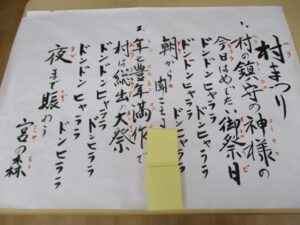 村まつり
一、村の鎮守の神様の
今日はめでたい御祭日
ドンドンヒャララ ドンヒャララ
ドンドンヒャララ ドンヒャララ
朝から聞こえる
二、年も豊年満作で
村は総出の大祭
ドンドンヒャララ ドンヒャララ
ドンドンヒャララ ドンヒャララ
夜まで賑わう
宮の森